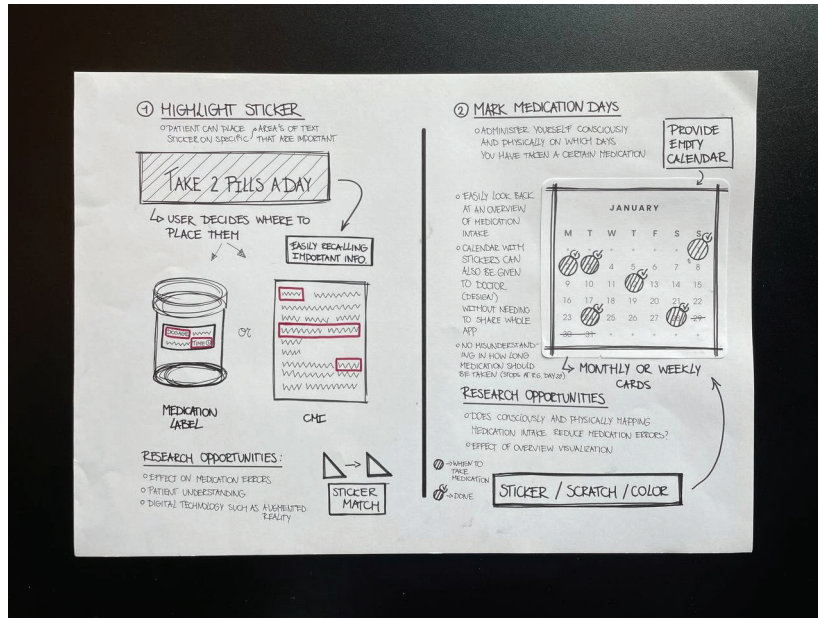 ① HIGHLIGHT STICKER
○ PATIENT CAN PLACE STICKER ON SPECIFIC / AREA'S OF TEXT THAT ARE IMPORTANT
TAKE 2 PILLS A DAY
↳ USER DECIDES WHERE TO
PLACE THEM
EASILY RECALLING
IMPORTANT INFO.
DOSAGE
TIME
OR
MEDICATION
LABEL
CMI
RESEARCH OPPORTUNITIES:
○ EFFECT ON MEDICATION ERRORS
○ PATIENT UNDERSTANDING
○ DIGITAL TECHNOLOGY SUCH AS AUGMENTED
REALITY
STICKER
MATCH
② MARK MEDICATION DAYS
○ ADMINISTER YOURSELF CONSCIOUSLY
AND PHYSICALLY ON WHICH DAYS
YOU HAVE TAKEN A CERTAIN MEDICATION
PROVIDE
EMPTY
CALENDAR
○ EASILY LOOK BACK
AT AN OVERVIEW
OF MEDICATION
INTAKE
○ CALENDAR WITH
STICKERS CAN
ALSO BE GIVEN
TO DOCTOR
(DESIGN')
WITHOUT NEEDING
TO SHARE WHOLE
APP
○ NO MISUNDERSTAND-
ING IN HOW LONG
MEDICATION SHOULD
BE TAKEN (STOPS AT E.G. DAY 28)
JANUARY
M T W T F S S
4 5 6 7 8
9 10 11 13 14 15
16 17 18 19 20 21 22
23 25 26 27 28 29
30 31
↳ MONTHLY OR WEEKLY
CARDS
RESEARCH OPPORTUNITIES
○ DOES CONSCIOUSLY AND PHYSICALLY MAPPING
MEDICATION INTAKE REDUCE MEDICATION ERRORS?
○ EFFECT OF OVERVIEW VISUALIZATION
→ WHEN TO
TAKE
MEDICATION
→ DONE
STICKER / SCRATCH / COLOR